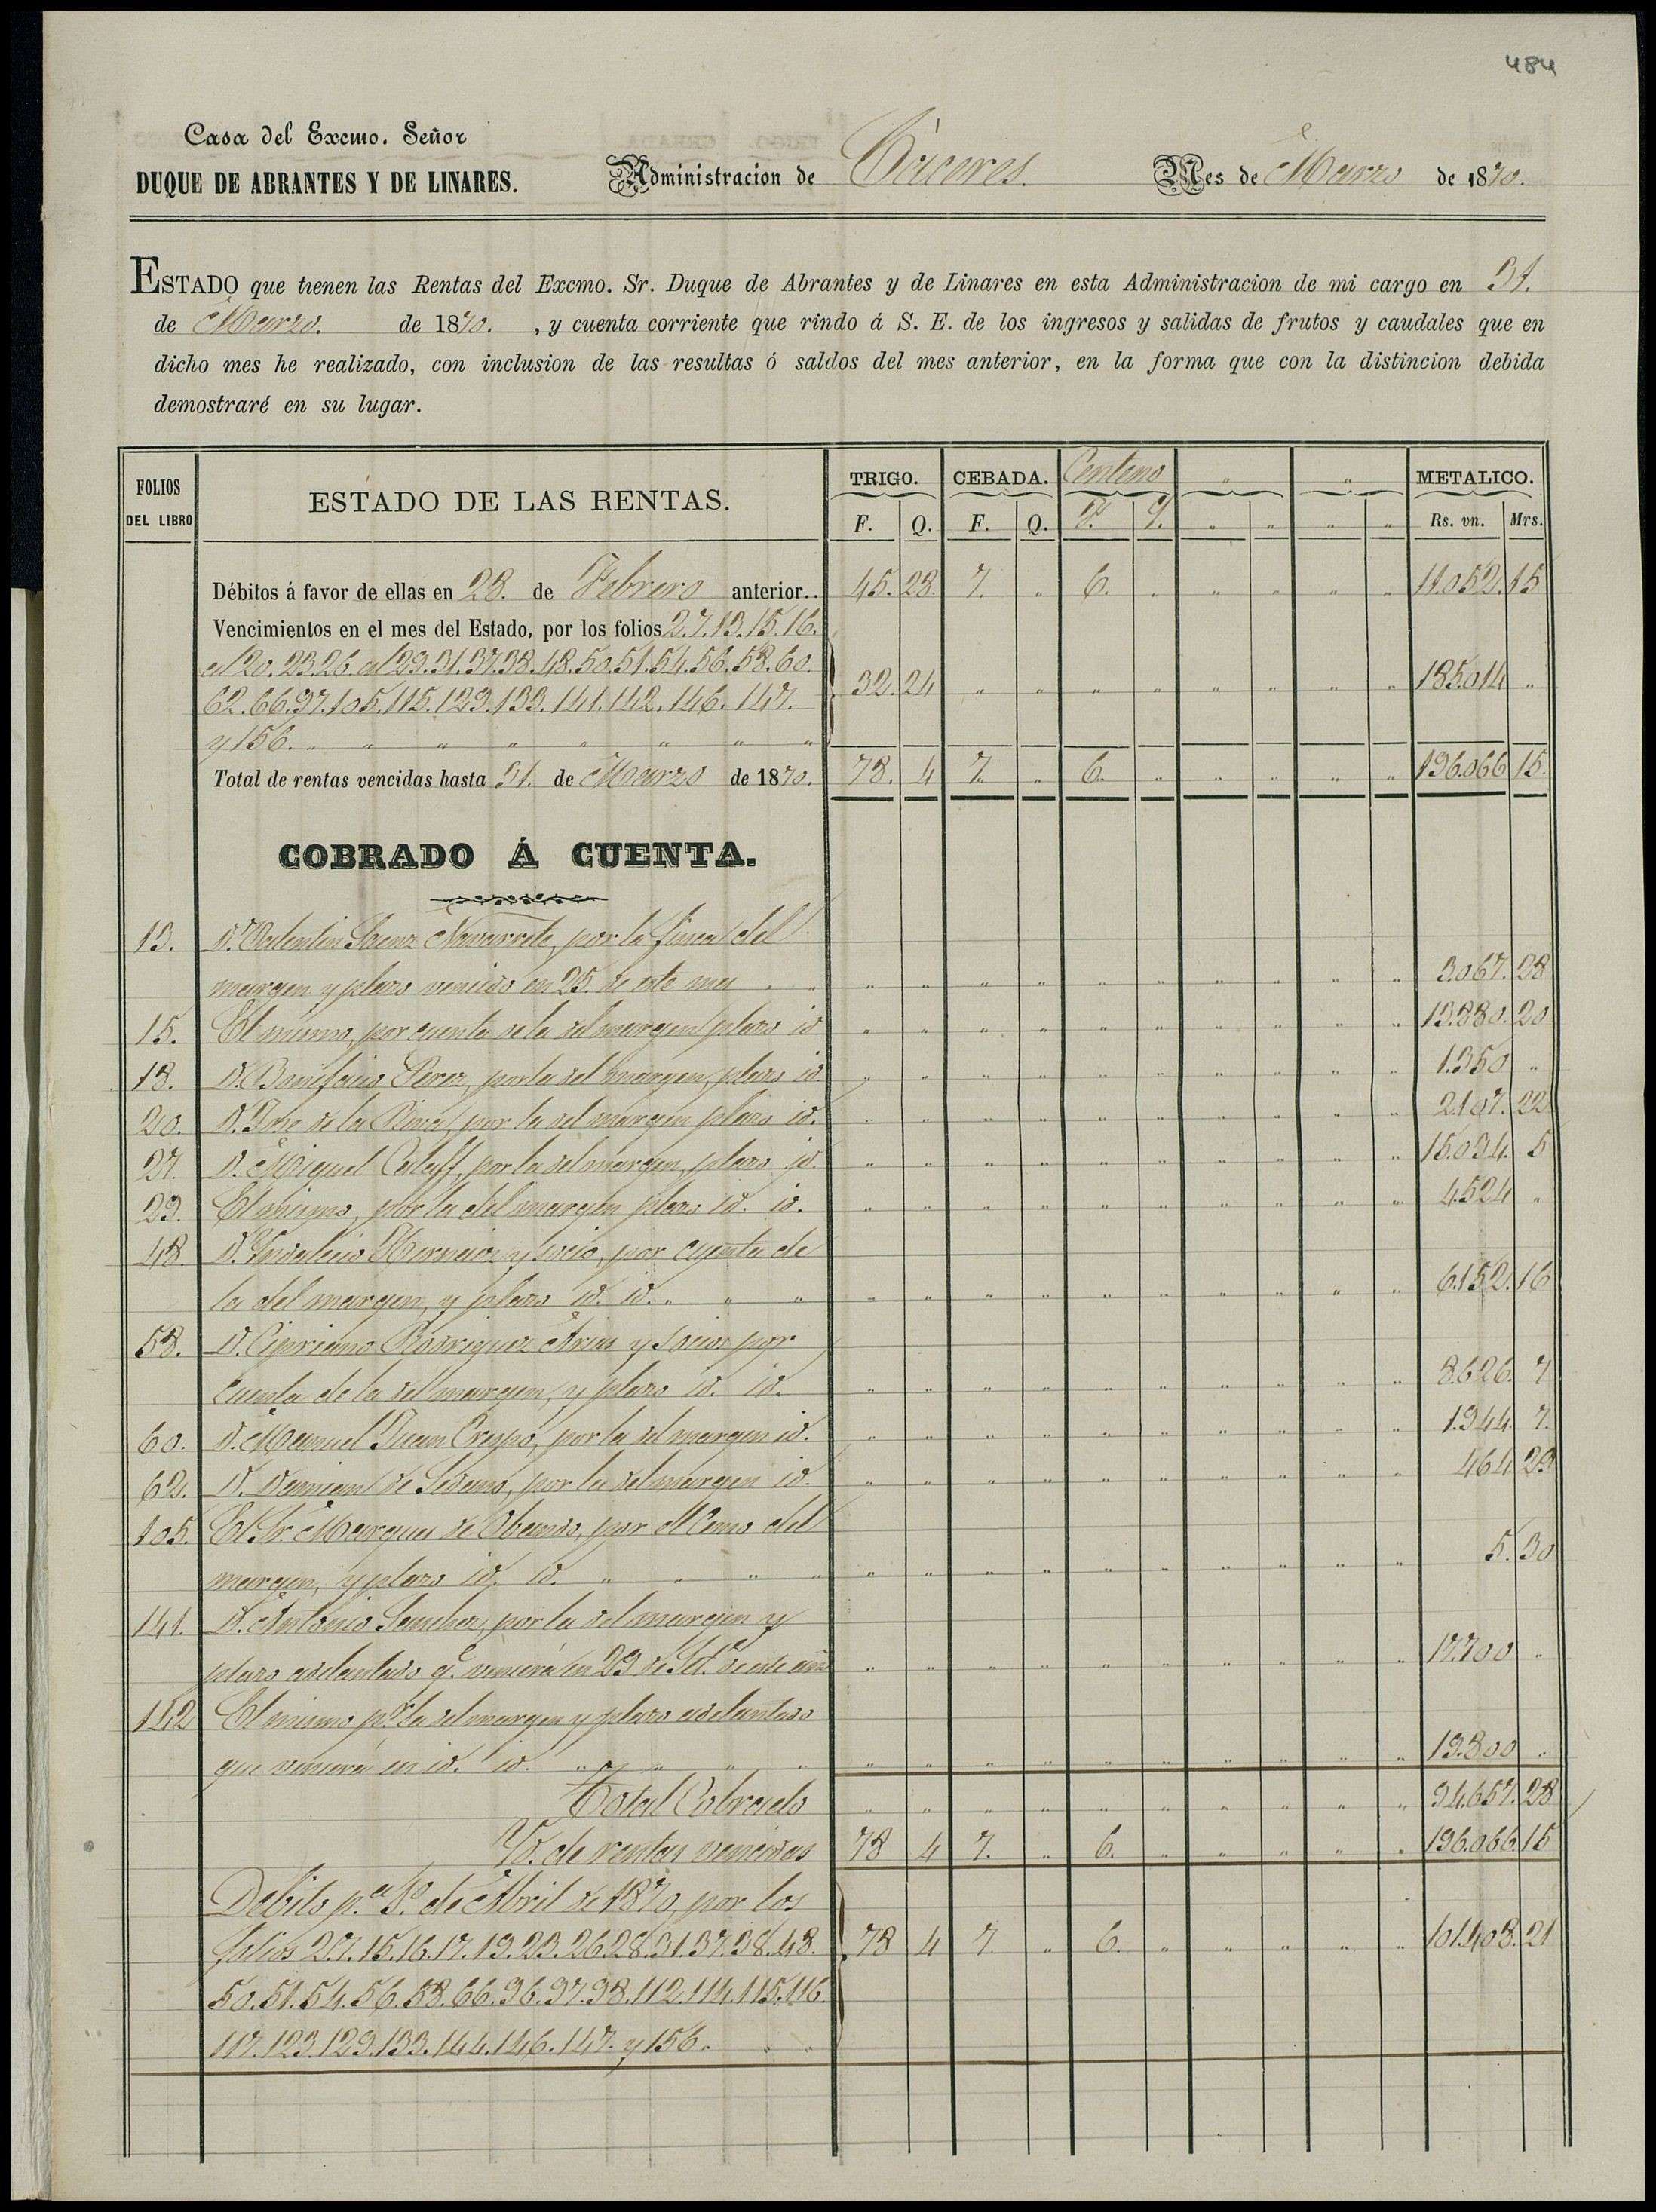 484
Casa del Excmo. Señor
DUQUE DE ABRANTES Y DE LINARES. Administracion de Cáceres. Mes de Marzo de 1870.
ESTADO que tienen las Rentas del Excmo. Sr. Duque de Abrantes y de Linares en esta Administracion de mi cargo en 31.
de Marzo. de 1870. , y cuenta corriente que rindo á S. E. de los ingresos y salidas de frutos y caudales que en
dicho mes he realizado, con inclusion de las resultas ó saldos del mes anterior, en la forma que con la distincion debida
demostraré en su lugar.
FOLIOS DEL LIBRO ESTADO DE LAS RENTAS. TRIGO. CEBADA. Centeno " " METALICO.
F. Q. F. Q. F. Q. " " " " Rs. vn. Mrs.
Débitos á favor de ellas en 28. de Febrero anterior.. 45. 28. 7. " 6. " " " " " 11.052. 15
Vencimientos en el mes del Estado, por los folios 2.7.13.15.16.
al 20.23.26 al 29.31.37.38.48.50.51.54.56.58.60.
62.66.97.105.115.129.133.141.142.146.147. 32. 24 " " " " " " " " 185.014 "
y 156. " " " " " " " "
Total de rentas vencidas hasta 31. de Marzo de 1870. 78. 4 7. " 6. " " " " " 196.066 15.
COBRADO Á CUENTA.
13. D. Valentin Saenz Navarrete, por la finca del
margen y plazo vencido en 25. de este mes " " " " " " " " " " " " 3.067. 28
15. El mismo, por cuenta de la del margen plazo id " " " " " " " " " " 13.880. 20
18. D. Bonifacio Perez, por la del margen, plazo id. " " " " " " " " " " 1.350 "
20. D. Jose de la Riva, por la del margen plazo id. " " " " " " " " " " 2.107. 22
27. D. Miguel Calaff, por la del margen, plazo id. " " " " " " " " " " 15.034. 5
29. El mismo, por la del margen plazo id. id. " " " " " " " " " " 4.524 "
48. D. Indalecio Hernaiz y socio, por cuenta de
la del margen, y plazo id. id. " " " " " " " " " " " " " 6.152. 16
58. D. Cipriano Rodriguez Arias y socios por
cuenta de la del margen, y plazo id. id. " " " " " " " " " " 8.626. 7
60. D. Manuel Juan Crespo, por la del margen id. " " " " " " " " " " 1.944. 7.
62. D. Damian de Sedano, por la del margen id. " " " " " " " " " " 464. 23
105. El Sr. Marques de Obando, por el Censo del
margen, y plazo id. id. " " " " " " " " " " " " " " 5. 30
141. D. Antonio Sanchez, por la del margen y
plazo adelantado q.e vencerá en 29 de Set.e de este año " " " " " " " " " " 17.700 "
142 El mismo p.r la del margen y plazo adelantado
que vencerá en id. id. " " " " " " " " " " " " " " " 19.800 "
Total Cobrado " " " " " " " " " " 94.657. 28
Yd. de rentas vencidas 78 4 7. " 6. " " " " " 196.066. 15
Debito p.a 1.o de Abril de 1870, por los
folios 2.7.15.16.17.19.23.26.28.31.37.38.48. 78 4 7. " 6. " " " " " 101.408. 21
50.51.54.56.58.66.96.97.98.112.114.115.116.
117.123.129.133.144.146.147. y 156. " "